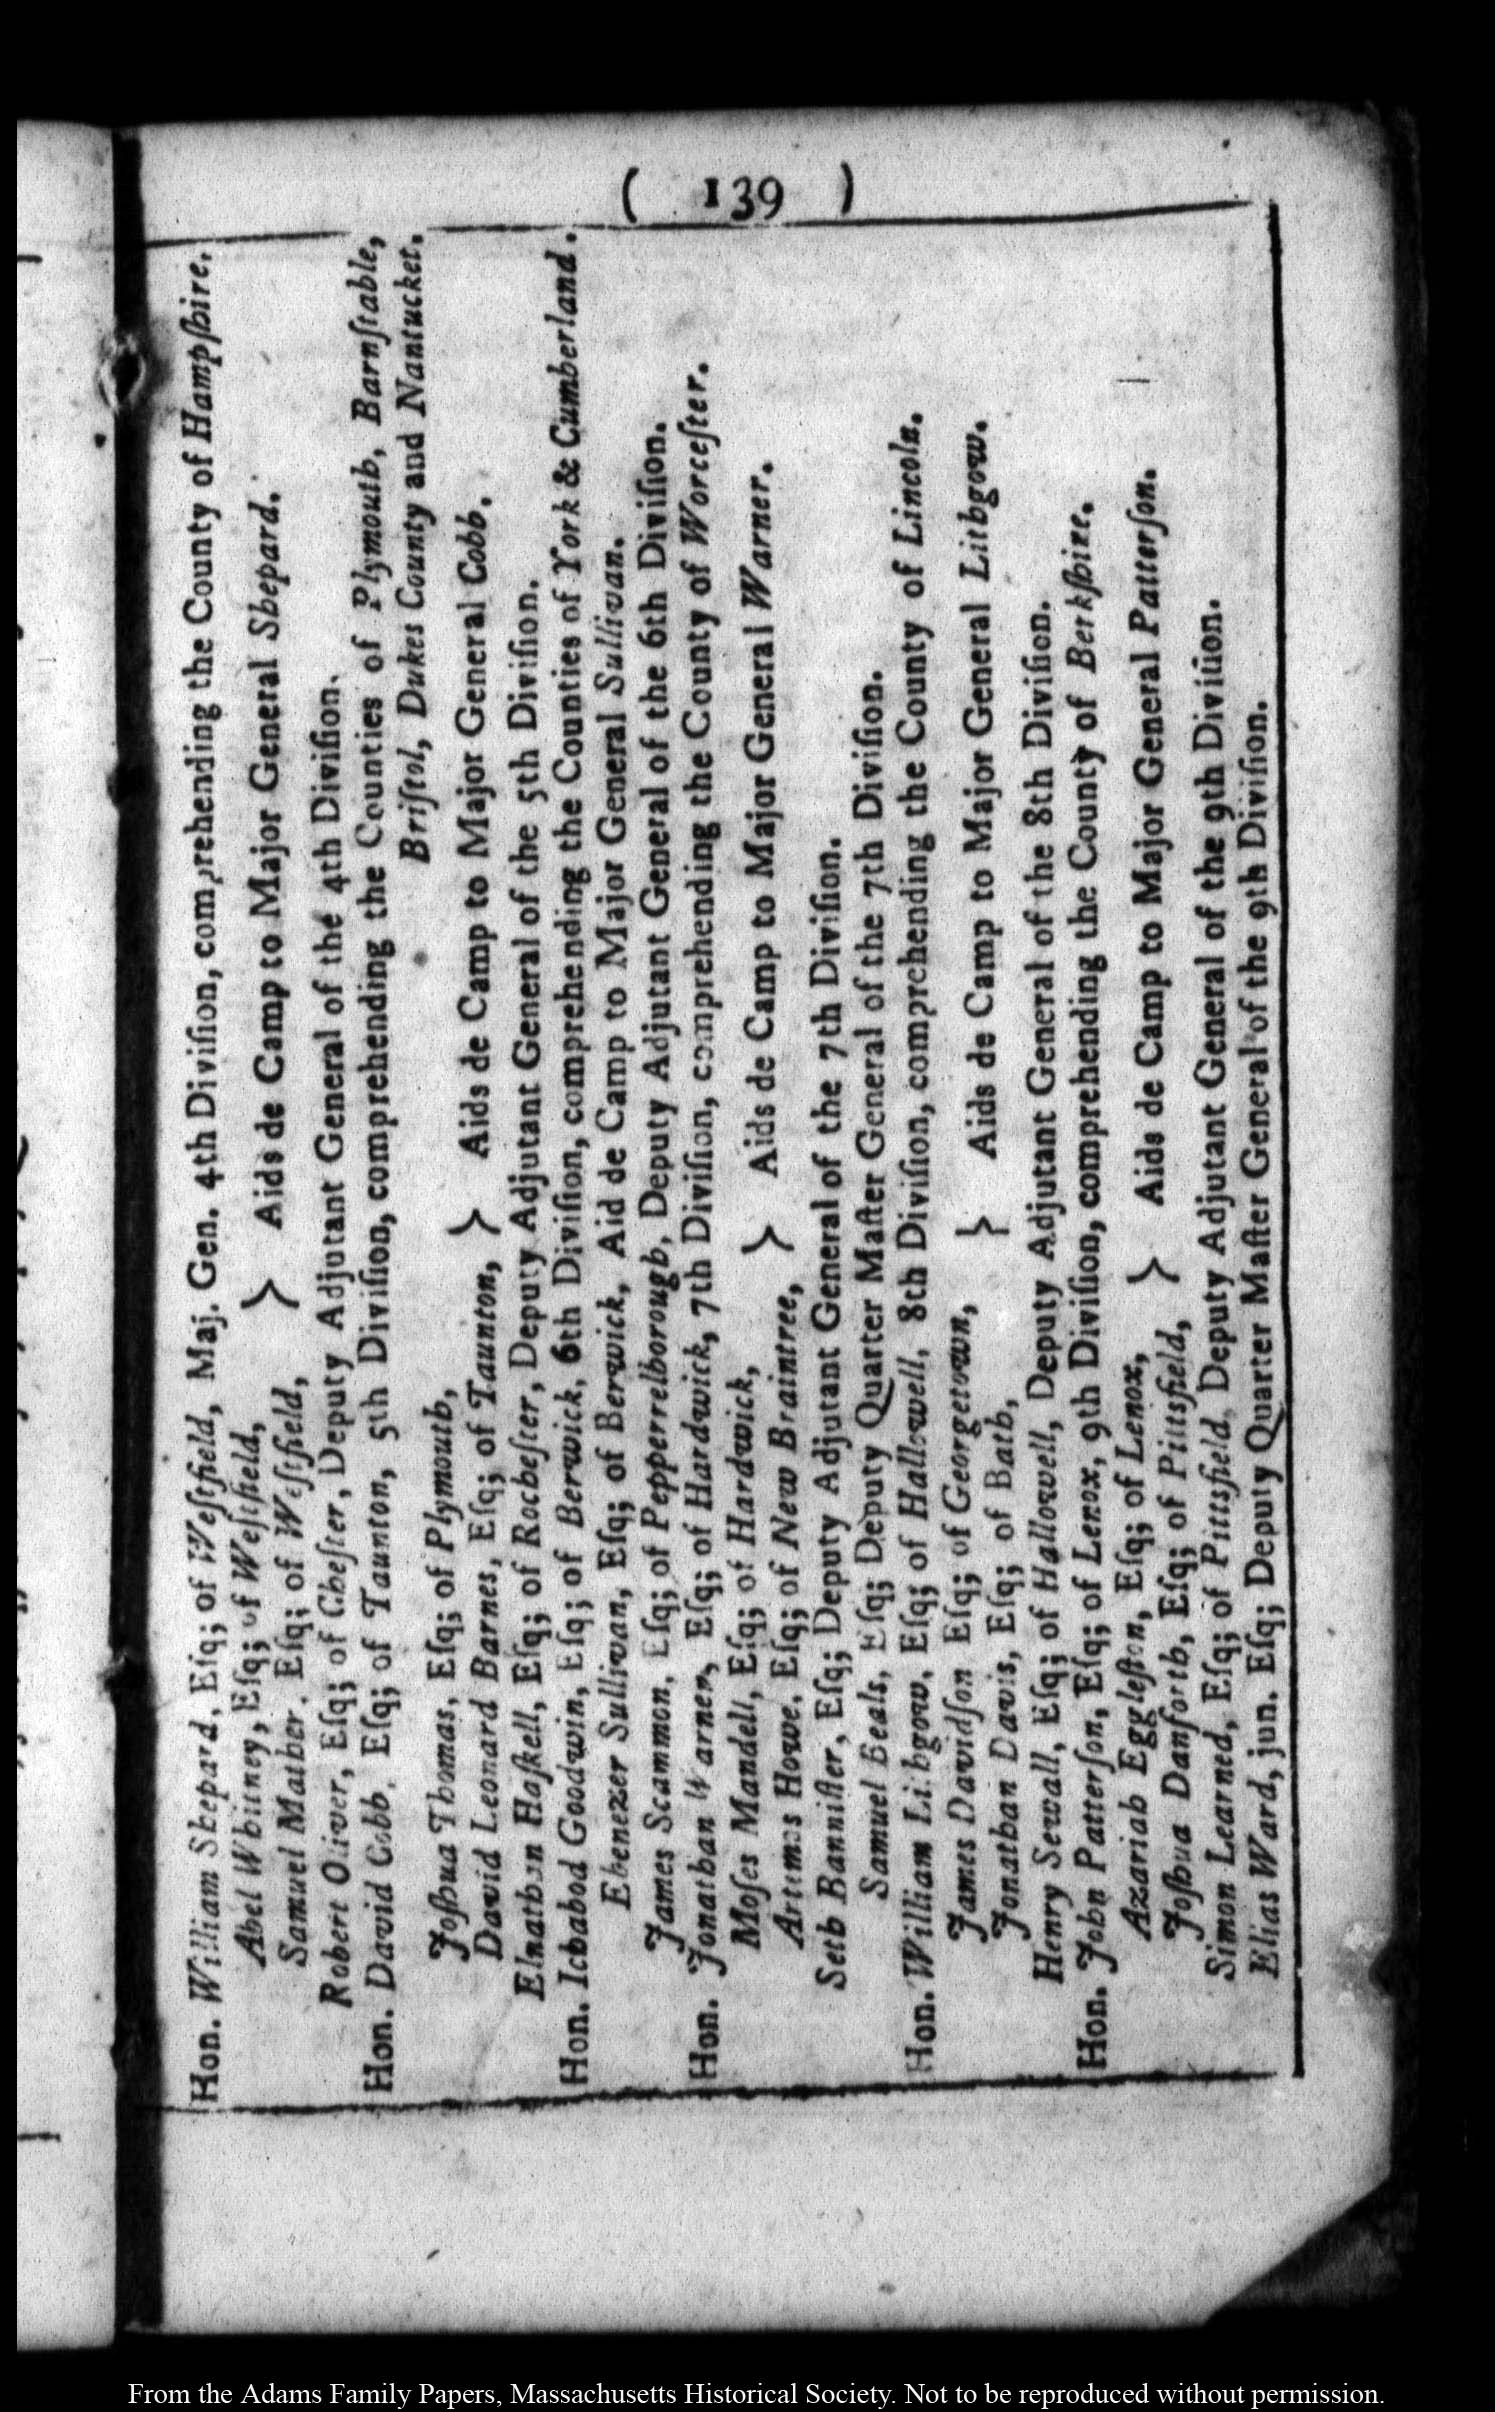 ( 139 )
Hon. William Shepard, Eſq; of Weſtfield, Maj. Gen. 4th Diviſion, comprehending the County of Hampſhire.
Abel Whitney, Eſq; of Weſtfield,
Samuel Mather, Eſq; of Weſtfield, } Aids de Camp to Major General Shepard.
Robert Oliver, Eſq; of Cheſter, Deputy Adjutant General of the 4th Diviſion.
Hon. David Cobb, Eſq; of Taunton, 5th Diviſion, comprehending the Counties of Plymouth, Barnſtable,
Briſtol, Dukes County and Nantucket.
Joſhua Thomas, Eſq; of Plymouth,
David Leonard Barnes, Eſq; of Taunton, } Aids de Camp to Major General Cobb.
Elnathan Haſkell, Eſq; of Rocheſter, Deputy Adjutant General of the 5th Diviſion.
Hon. Ichabod Goodwin, Eſq; of Berwick, 6th Diviſion, comprehending the Counties of York & Cumberland.
Ebenezer Sullivan, Eſq; of Berwick, Aid de Camp to Major General Sullivan.
James Scammon, Eſq; of Pepperrelborough, Deputy Adjutant General of the 6th Diviſion.
Hon. Jonathan Warner, Eſq; of Hardwick, 7th Diviſion, comprehending the County of Worceſter.
Moſes Mandell, Eſq; of Hardwick,
Artemas Howe, Eſq; of New Braintree, } Aids de Camp to Major General Warner.
Seth Banniſter, Eſq; Deputy Adjutant General of the 7th Diviſion.
Samuel Beals, Eſq; Deputy Quarter Maſter General of the 7th Diviſion.
Hon. William Lithgow, Eſq; of Hallowell, 8th Diviſion, comprehending the County of Lincoln.
James Davidſon Eſq; of Georgetown,
Jonathan Davis, Eſq; of Bath, } Aids de Camp to Major General Lithgow.
Henry Sewall, Eſq; of Hallowell, Deputy Adjutant General of the 8th Diviſion.
Hon. John Patterſon, Eſq; of Lenox, 9th Diviſion, comprehending the County of Berkſhire.
Azariah Eggleſton, Eſq; of Lenox,
Joſhua Danforth, Eſq; of Pittsfield, } Aids de Camp to Major General Patterſon.
Simon Learned, Eſq; of Pittsfield, Deputy Adjutant General of the 9th Diviſion.
Elias Ward, jun. Eſq; Deputy Quarter Maſter General of the 9th Diviſion.
From the Adams Family Papers, Massachusetts Historical Society. Not to be reproduced without permission.